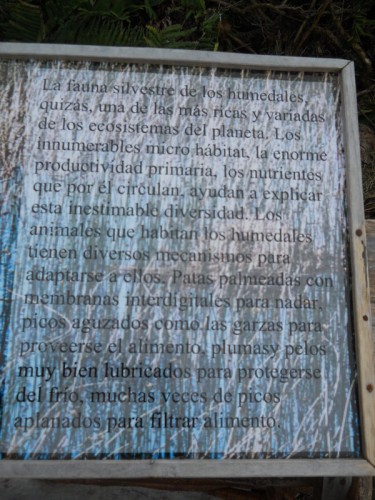 La fauna silvestre de los humedales,
quizás, una de las más ricas y variadas
de los ecosistemas del planeta. Los
innumerables micro hábitat, la enorme
productividad primaria, los nutrientes
que por él circulan, ayudan a explicar
esta inestimable diversidad. Los
animales que habitan los humedales
tienen diversos mecanismos para
adaptarse a ellos. Patas palmeadas con
membranas interdigitales para nadar,
picos aguzados como las garzas para
proveerse el alimento, plumasy pelos
muy bien lubricados para protegerse
del frío, muchas veces de picos
aplanados para filtrar alimento.